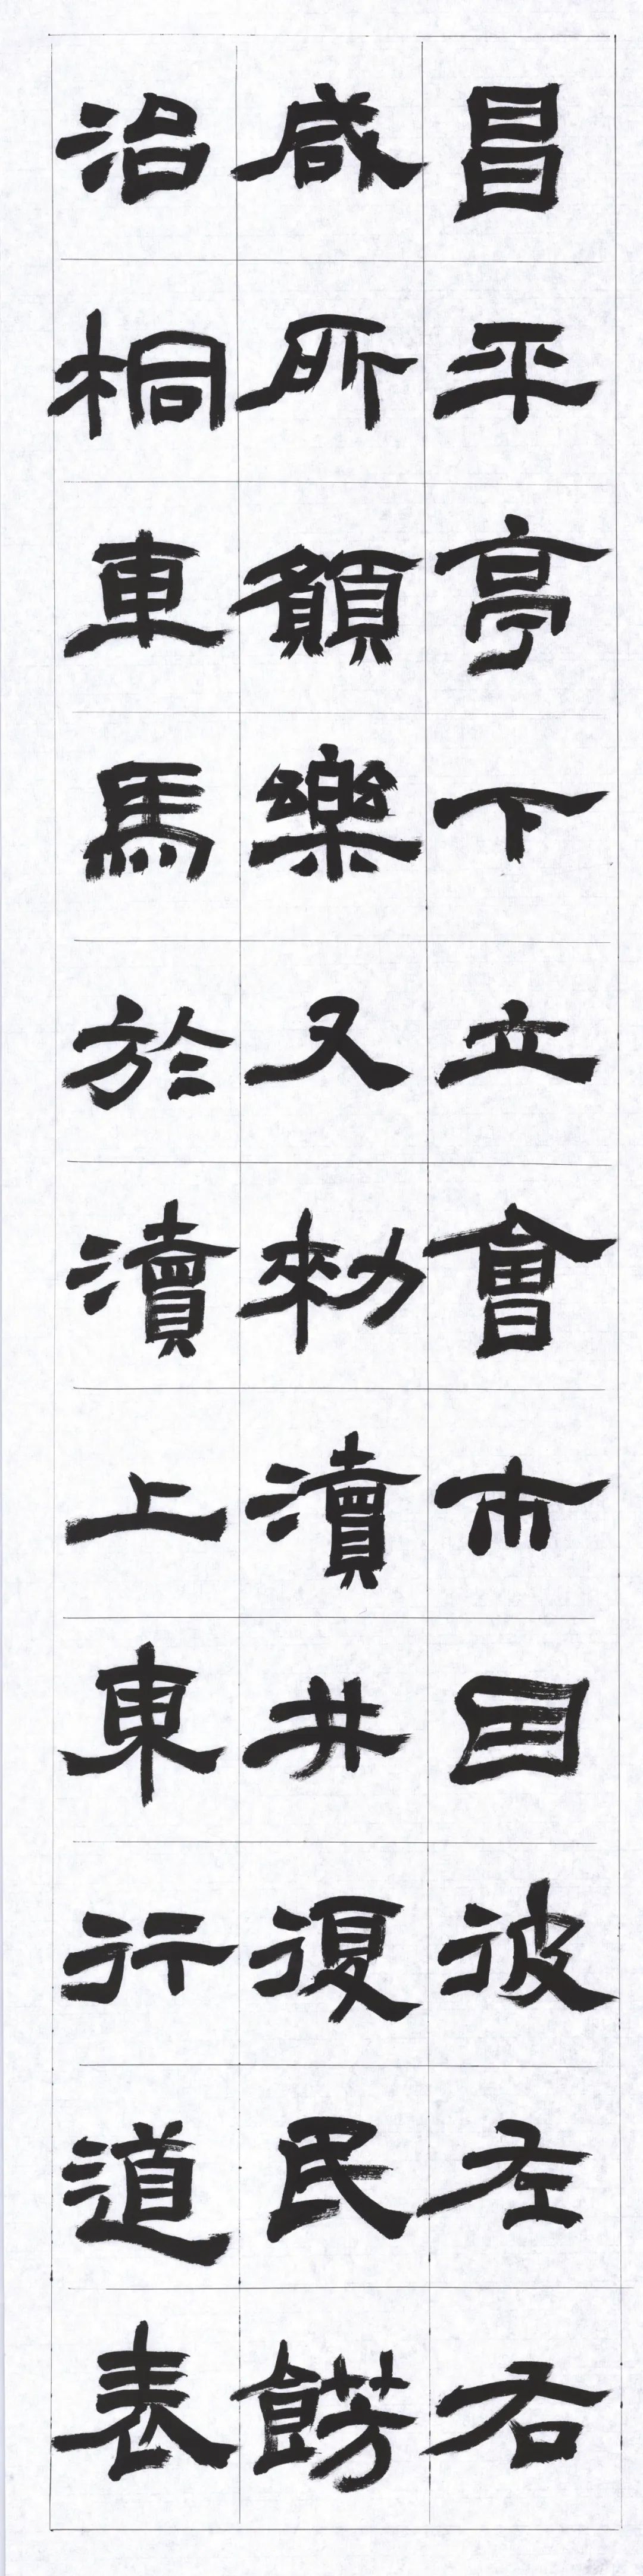 昌平亭下立會市因彼左右
咸所願樂又勑瀆井復民餝
治桐車馬於瀆上東行道表